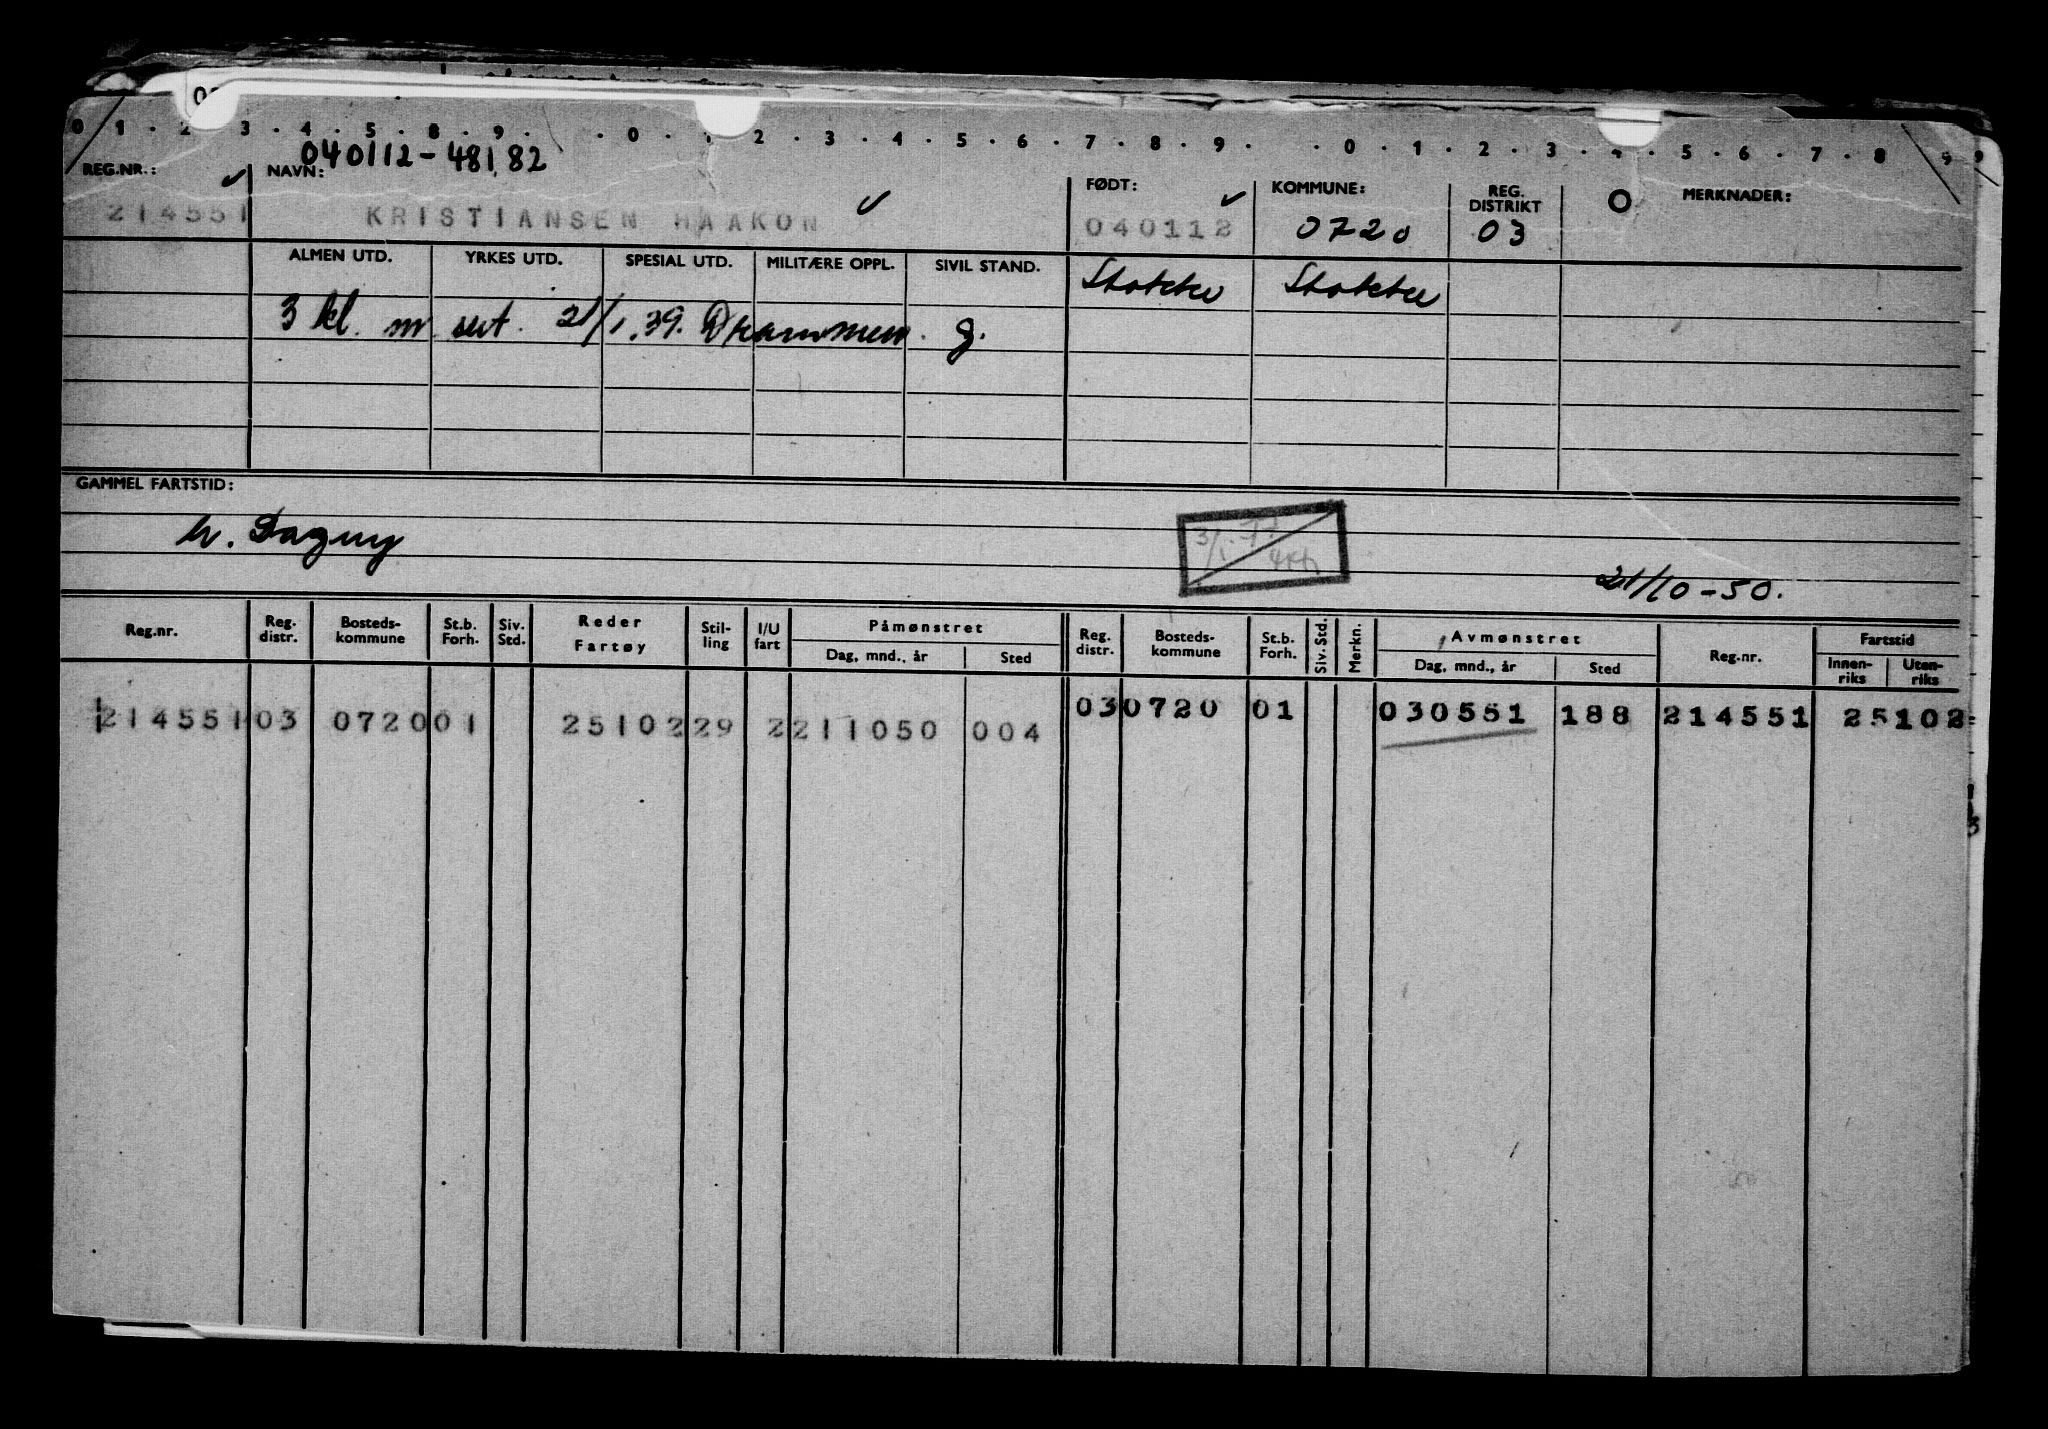 0 1 . 2 3 . 4 . 5 . 8 . 9 . . 0 . 1 2 . 3 . 4 . 5 . 6 . 7 . 8 . 9 . . 0 . 1 . 2 . 3 . 4 . 5 . 6 . 7 . 8 9
040112-48182
REG.NR.: NAVN: FØDT: KOMMUNE: REG. DISTRIKT O MERKNADER:
214551 KRISTIANSEN HAAKON 040112 0720 03
ALMEN UTD. YRKES UTD. SPESIAL UTD. MILITÆRE OPPL. SIVIL STAND. Stokke Stokke
3 kl. m sert. 21/1.39. Drammen. g.
GAMMEL FARTSTID:
h. Dagny
3/1-77
21/10-50.
Reg.nr. Reg. distr. Bosteds-kommune St.b. Forh. Siv. Std. Reder Fartøy Stil-ling I/U fart Påmønstret Reg. distr. Bosteds-kommune St.b. Forh. Siv. Std. Merkn. Avmønstret Reg.nr. Fartstid
Dag, mnd., år Sted Dag, mnd., år Sted Innen-riks Uten-riks
214551 03 0720 01 25102 29 2 211050 004 03 0720 01 030551 188 214551 25102